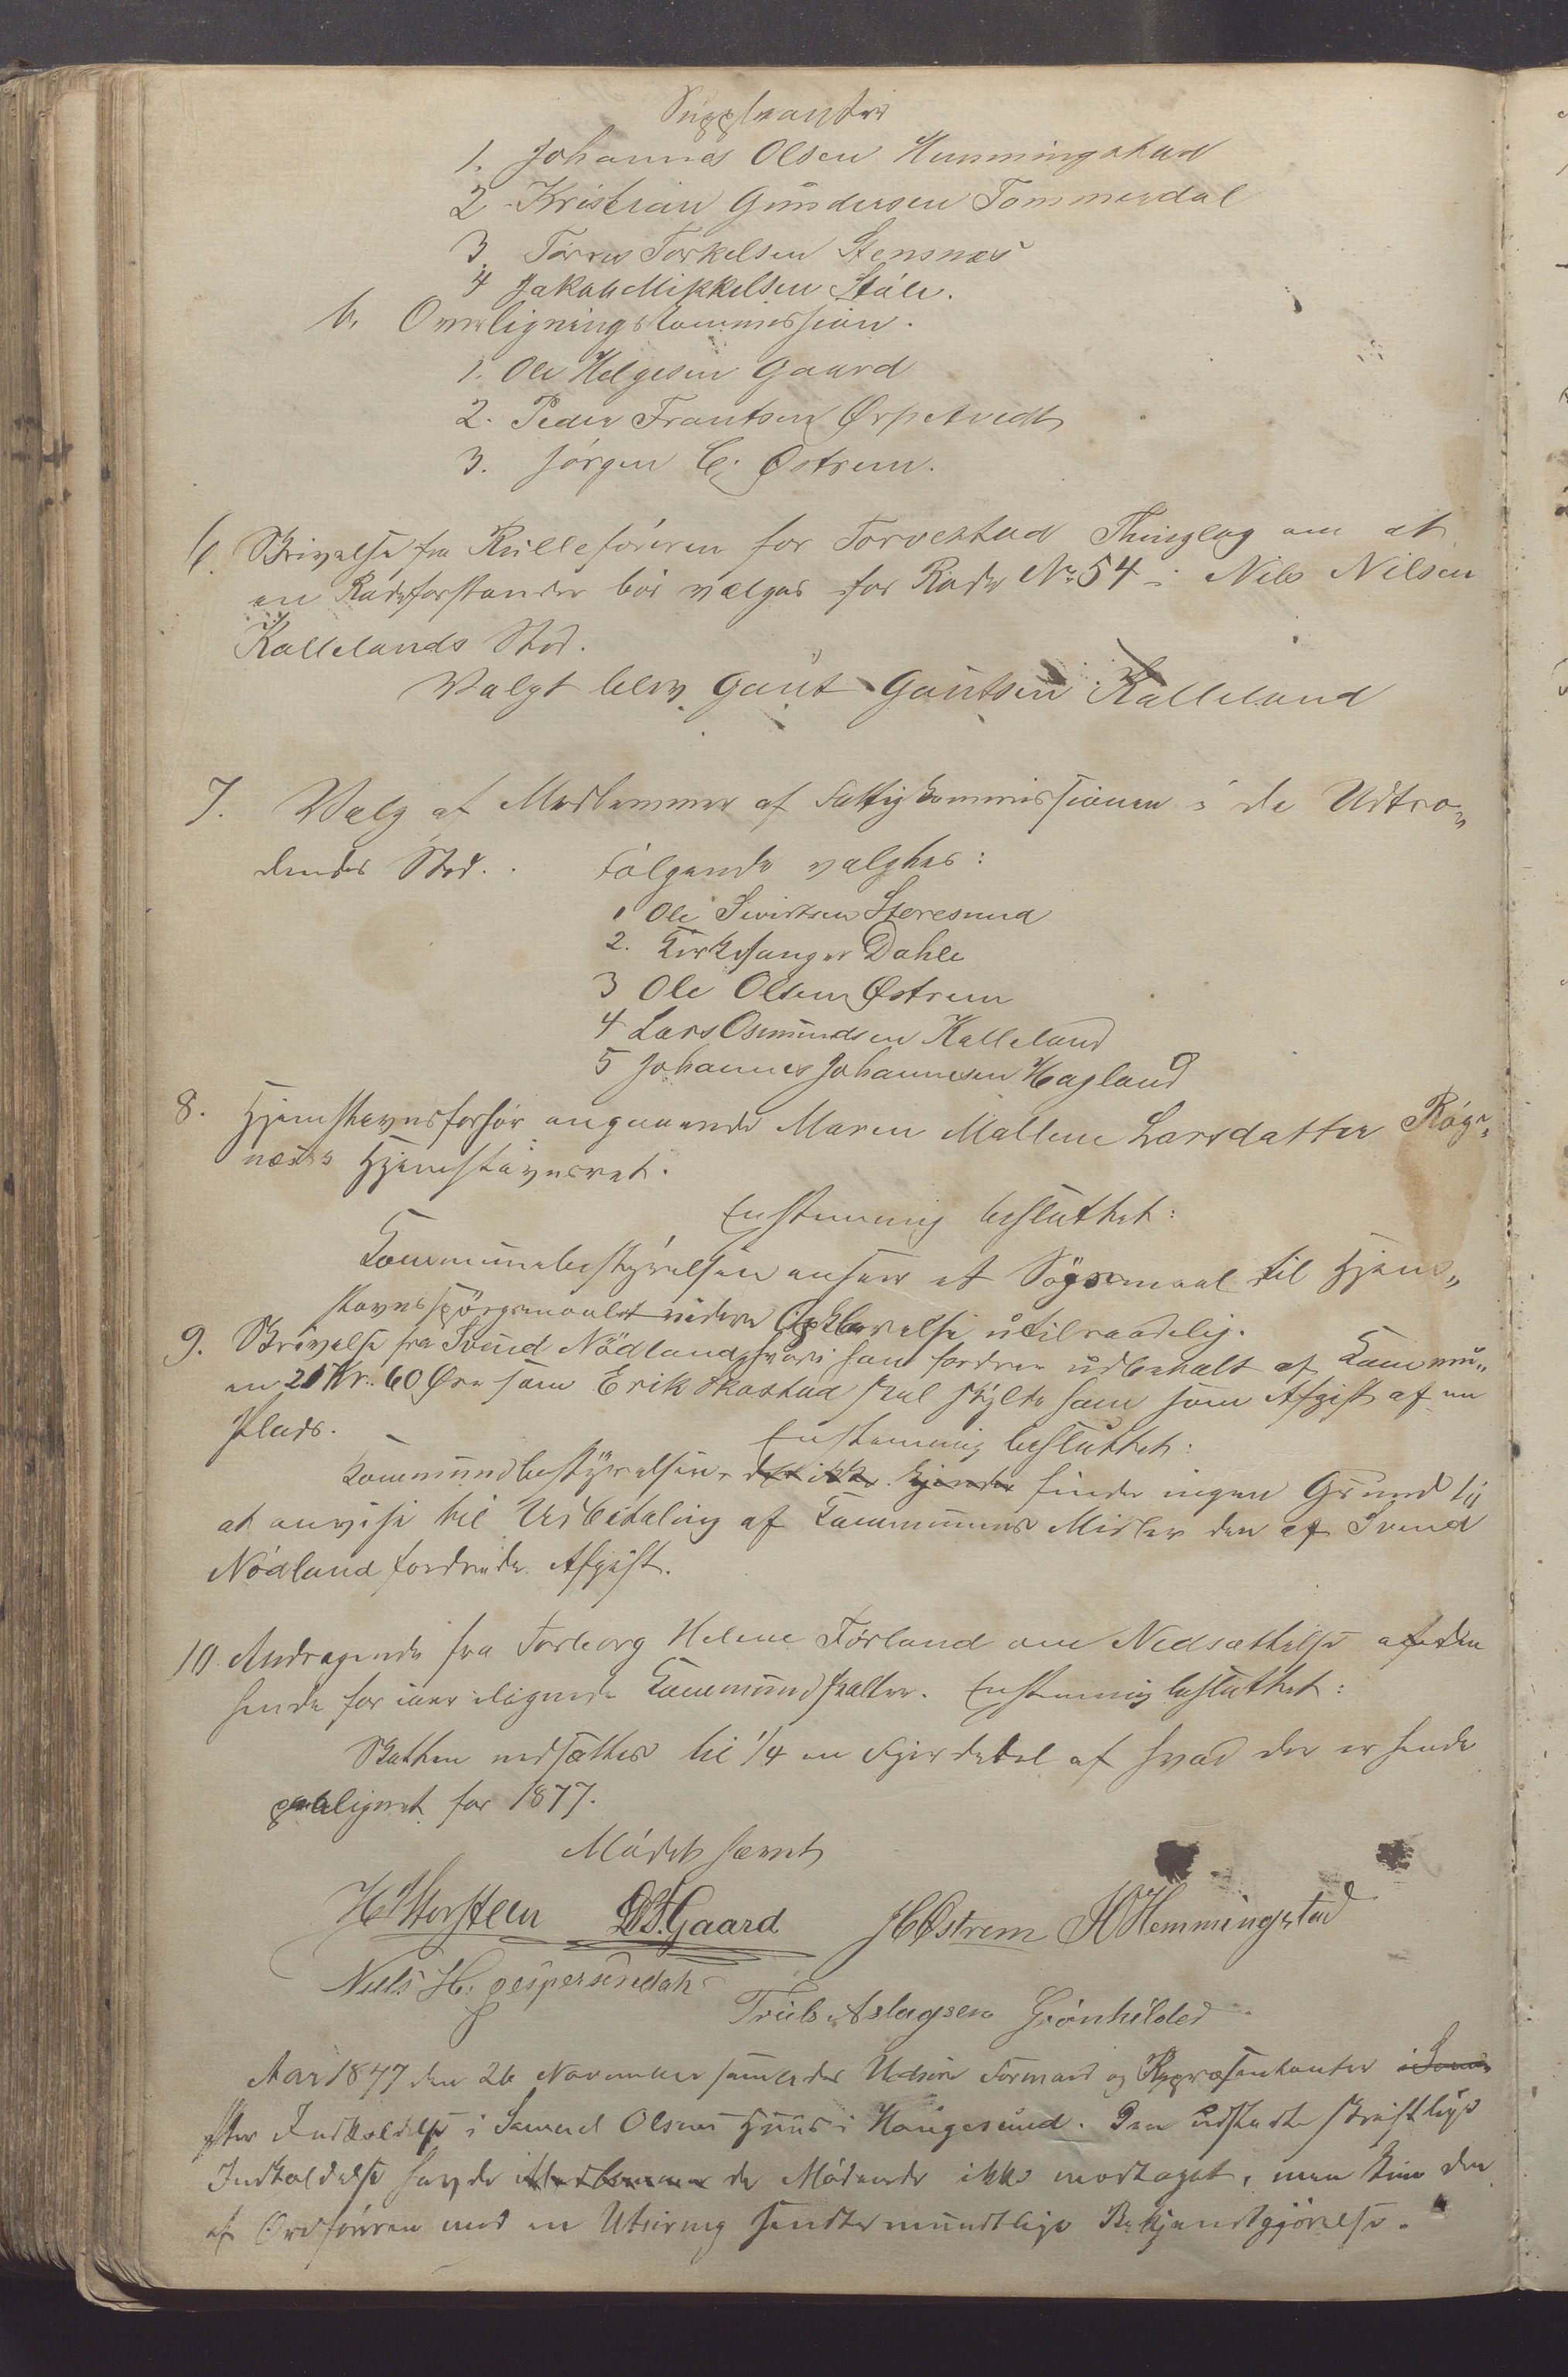 Suppleanter
1. Johannes Olsen Hemmingstad
2. Kristian Gundersen Tommerdal
3. Tørres Torkelsen Stensnæs
4 Jakob Mikkelsen Ståle.
b. Overligningskommission.
1. Ole Helgesen Gaard
2. Peder Frantsen Ørpetvedt
3. Jørgen C. Østrem.
6. Skrivelse fra Rulleføreren for Torvestad Thinglag om at
en Rodeforstander bör vælges for Rode No 54 i Nils Nilsen
Kallelands Sted.
Valgt blev Gaut Gautsen Kalleland
7. Valg af Medlemmer af Fattigkommissionen i de Udtræ„
dendes Sted. Følgende valgtes:
1 Ole Sivertsen Storesund
2. Kirkesanger Dahle
3 Ole Olsen Østrem
4 Lars Osmundsen Kalleland
5 Johannes Johannesen Hagland
8. Hjemstavnsforhør angaaende Maren Mallene Larsdatter Røg„
næs's Hjemstavnsret.
Enstemmig besluttet:
Kommunebestyrelsen anser et Søgsmaal til Hjem„
stavnsspørgsmaalet videre Opklarelse utilraadelig.
9. Skrivelse fra Svend Nödland, hvori han fordrer udbetalt af Kommu„
en 21 Kr. 60 Øre som Erik Skastad skal skylde ham som Afgift af en
Plads.
Enstemmig besluttet:
Kommunebestyrelsen det ikke kjender finder ingen Grund til
at anvise til Udbetaling af Kommunens Midler den af Svend
Nødland fordrede Afgift.
10 Andragende fra Torborg Helene Førland om Nedsættelse af den
hende for iaar ilignede Kommuneskatter. Enstemmig besluttet:
Skatten nedsættes til 1/4 en Fjerdedel af hvad der er hende
paalignet for 1877.
Mødet hævet
H Storsteen D.T. Gaard J C Østrem J O Hemmingstad
Niels H. Jespersen
Truls Aslagsen Grønhilder
Aar 1877 den 26 November samledes Utsire Formand og Repræsentanter
efter Indkaldelse i Samuel Olsens Huus i Haugesund. Den udstedte skriftlige
Indkaldelse havde Medlemmer de Mødende ikke modtaget, men kun den
af Ordføreren med en Utsiring sendte mundtlige Bekjendtgjörelse.